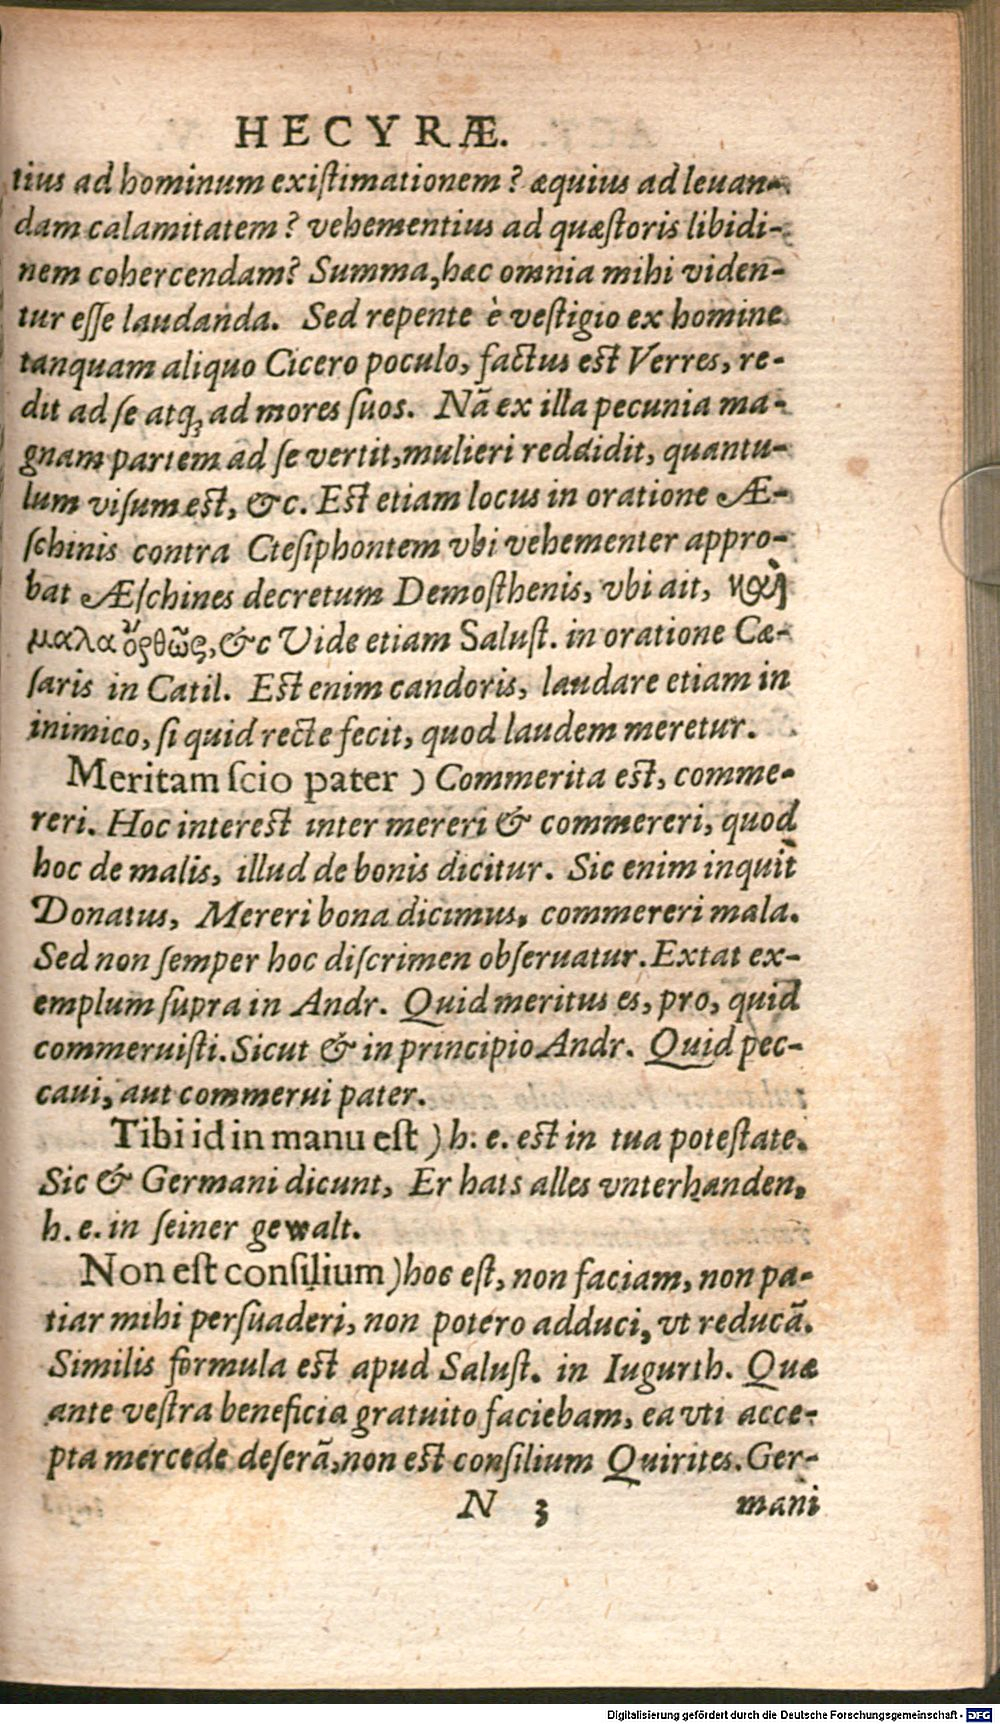 HECYRÆ.
tius ad hominum existimationem? æquius ad leuan-
dam calamitatem? vehementius ad quæstoris libidi-
nem cohercendam? Summa, hæc omnia mihi viden-
tur esse laudanda. Sed repente è vestigio ex homine
tanquam aliquo Cicero poculo, factus est Verres, re-
dit ad se atq; ad mores suos. Nã ex illa pecunia ma-
gnam partem ad se vertit, mulieri reddidit, quantu-
lum visum est, &c. Est etiam locus in oratione Æ-
schinis contra Ctesiphontem vbi vehementer appro-
bat Æschines decretum Demosthenis, vbi ait, καὶ
μαλα ὀρθῶς, &c Vide etiam Salust. in oratione Cæ-
saris in Catil. Est enim candoris, laudare etiam in
inimico, si quid recte fecit, quod laudem meretur.
Meritam scio pater ) Commerita est, comme-
reri. Hoc interest inter mereri & commereri, quod
hoc de malis, illud de bonis dicitur. Sic enim inquit
Donatus, Mereri bona dicimus, commereri mala.
Sed non semper hoc discrimen obseruatur. Extat ex-
emplum supra in Andr. Quid meritus es, pro, quid
commeruisti. Sicut & in principio Andr. Quid pec-
caui, aut commerui pater.
Tibi id in manu est ) h. e. est in tua potestate.
Sic & Germani dicunt, Er hats alles vnterhanden,
h. e. in seiner gewalt.
Non est consilium ) hoc est, non faciam, non pa-
tiar mihi persuaderi, non potero adduci, vt reducã.
Similis formula est apud Salust. in Iugurth. Quæ
ante vestra beneficia gratuito faciebam, ea vti acce-
pta mercede deserã, non est consilium Quirites. Ger-
N 3 mani
Digitalisierung gefördert durch die Deutsche Forschungsgemeinschaft - DFG